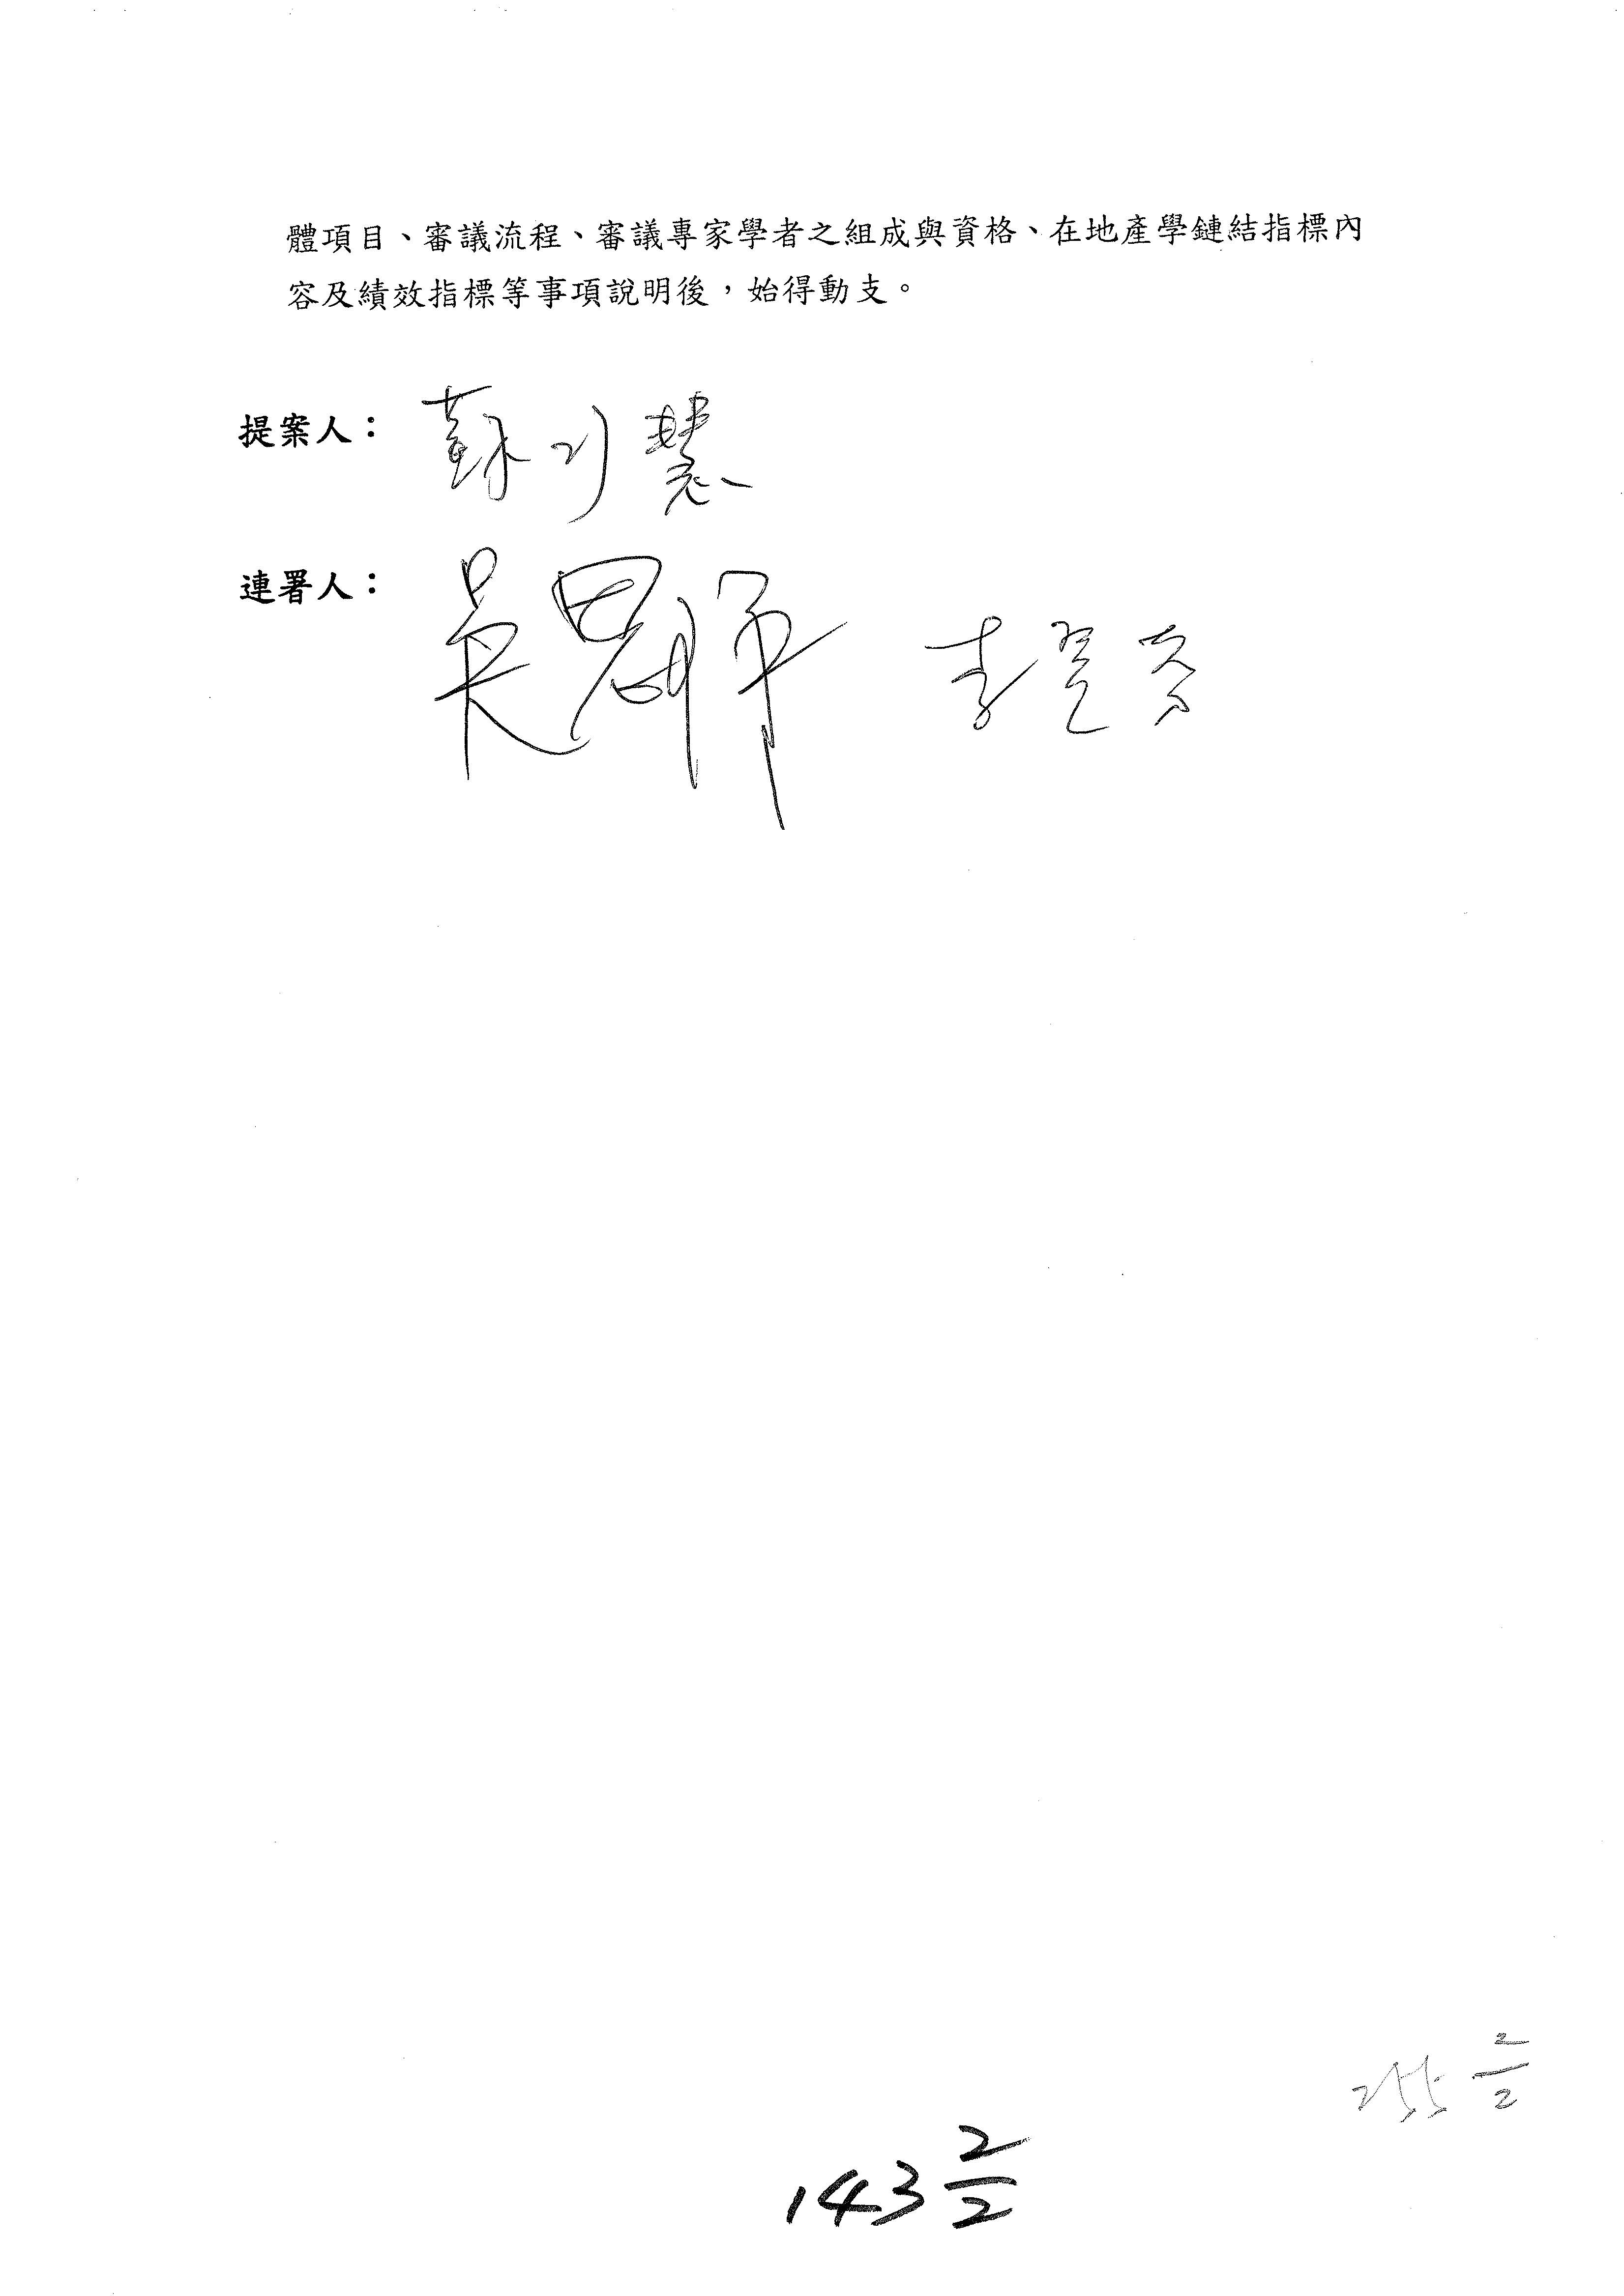 體項目、審議流程、審議專家學者之組成與資格、在地產學鏈結指標內
容及績效指標等事項說明後，始得動支。
提案人： 蘇巧慧
連署人： 吳思瑤
143 2/2
255 2/2